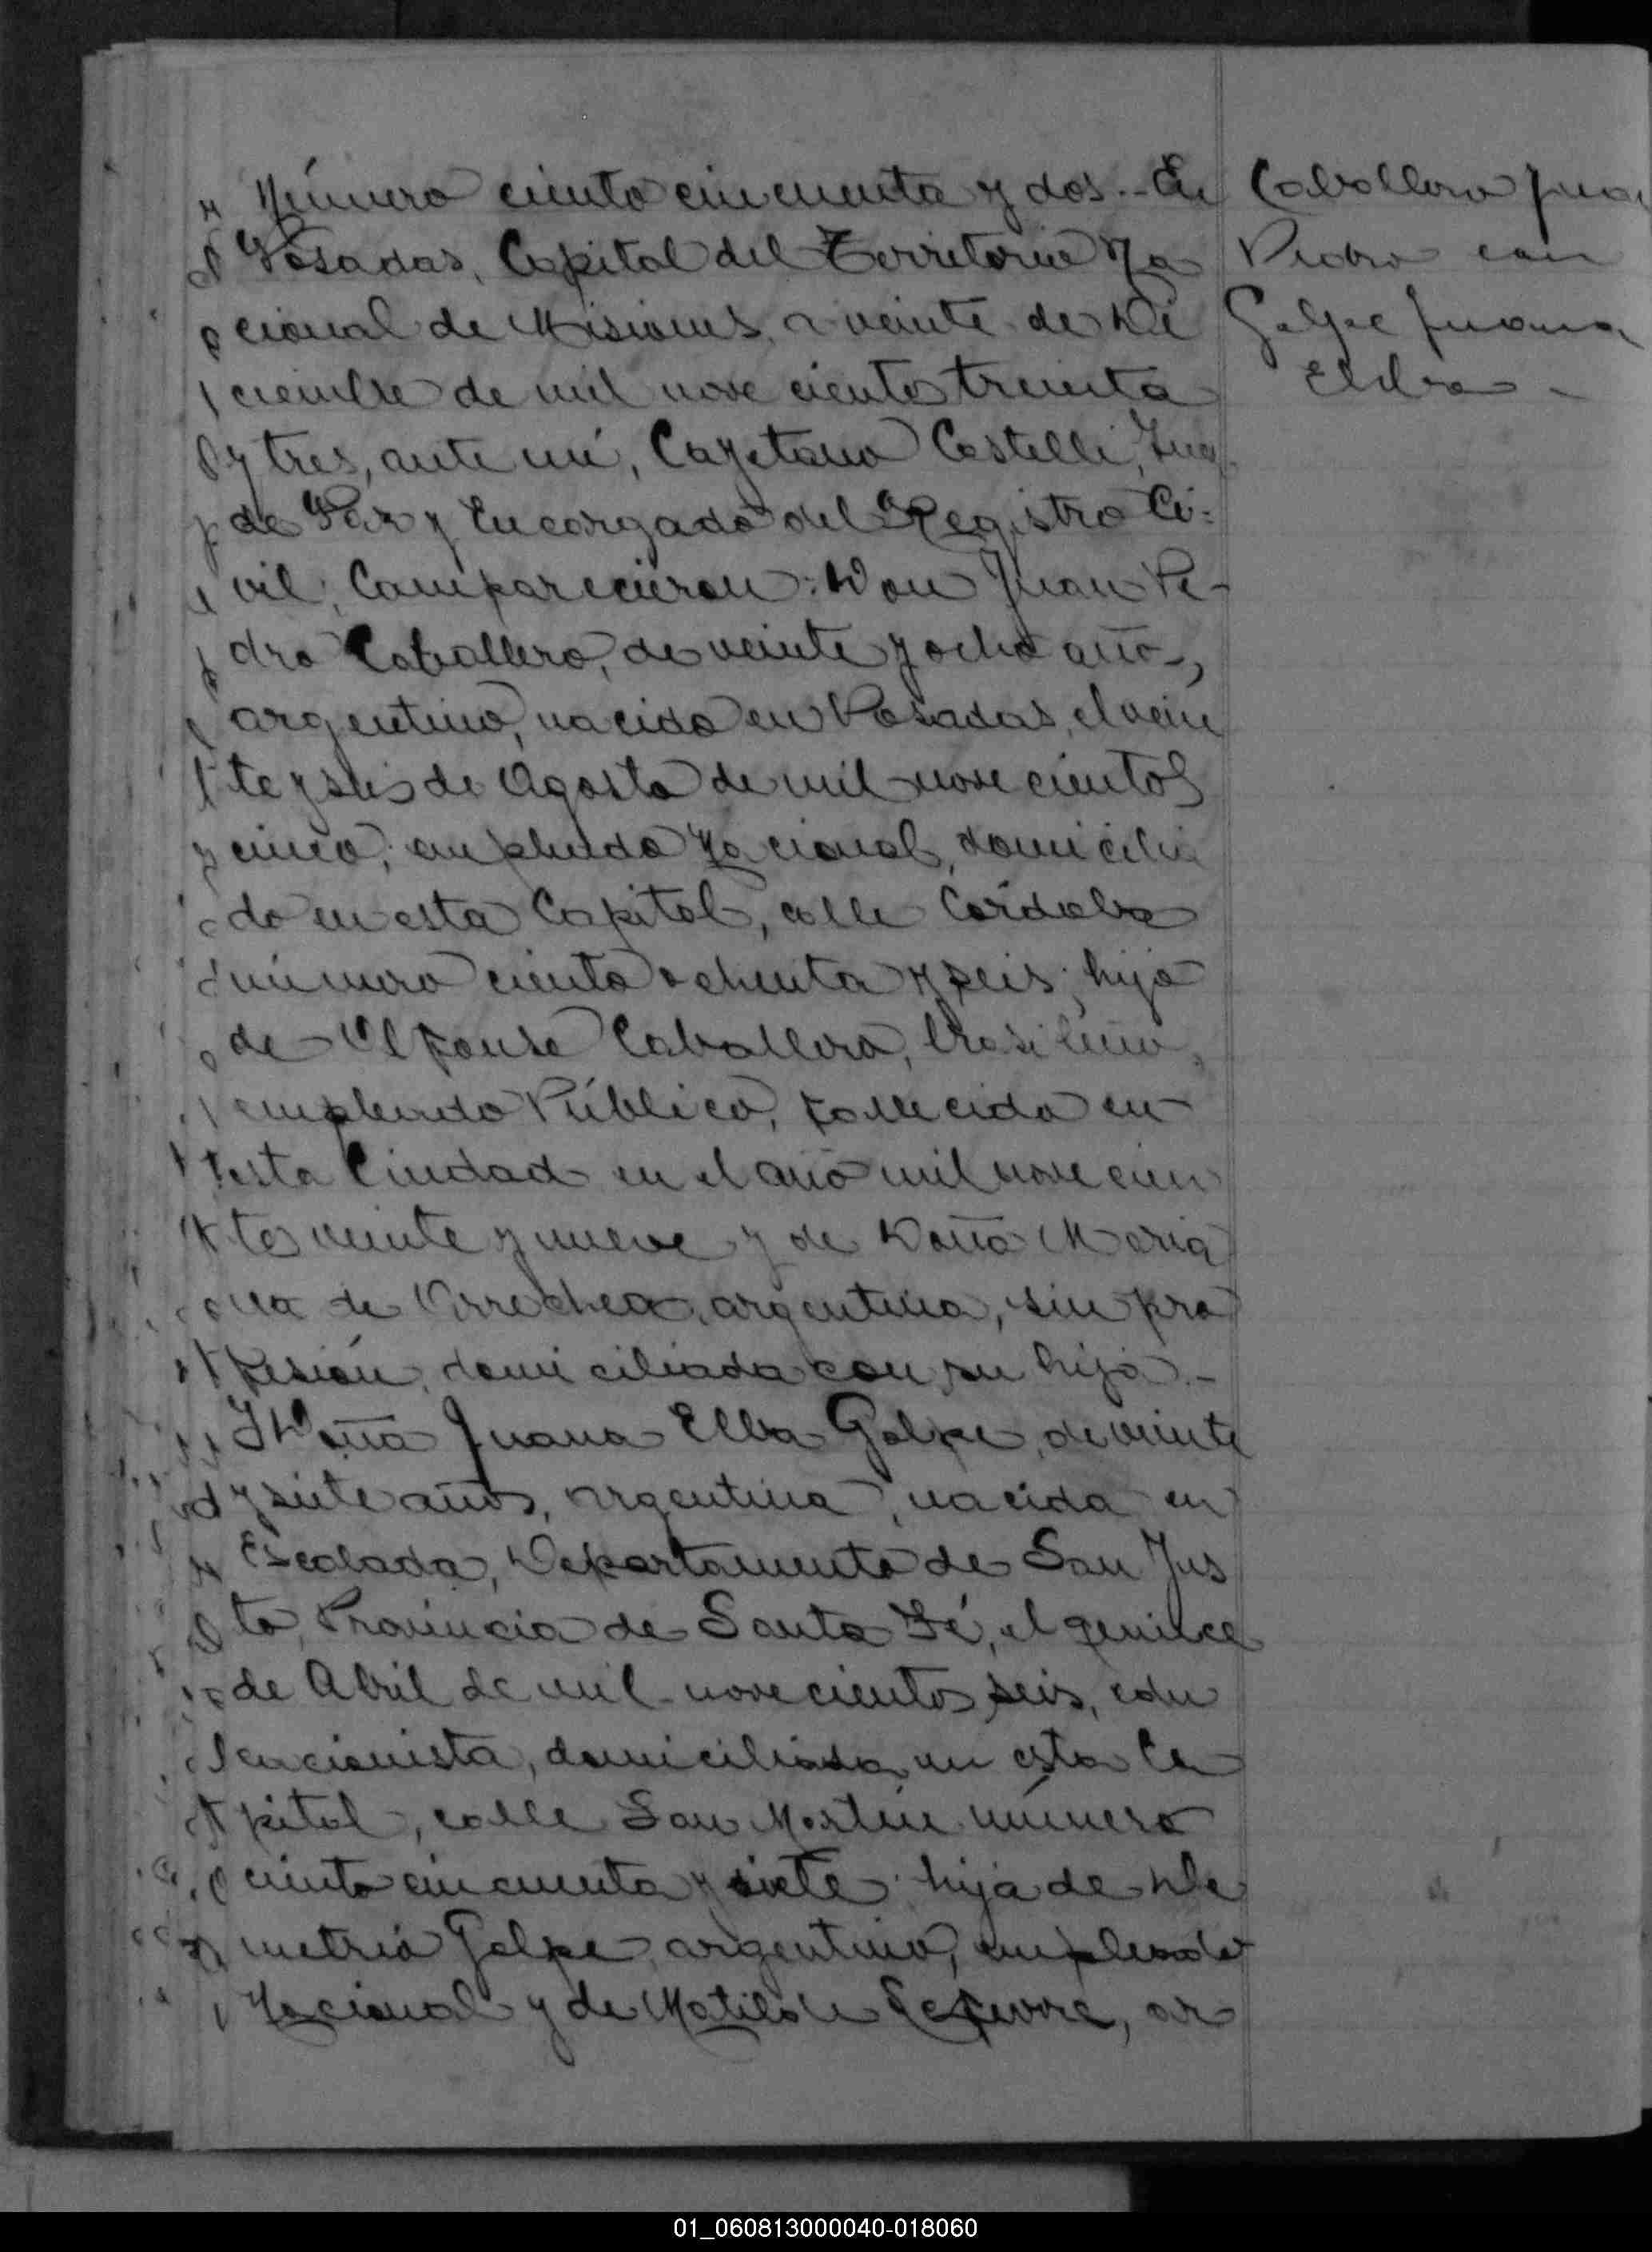 Número ciento cincuenta y dos.- En
Posadas, Capital del Territorio Na
cional de Misiones, a veinte de Di
ciembre de mil nove cientos treinta
y tres, ante mí, Cayetano Castelli, Juez
de Paz y Encargado del Registro Ci-
vil, Comparecieron: Don Juan Pe-
dro Caballero, de veinte y ocho años,
argentino, nacido en Posadas, el vein
te y seis de Agosto de mil nove cientos
cinco, empleado Nacional, domicilia
do en esta Capital, calle Córdoba
número ciento ochenta y seis; hijo
de Alfonso Caballero, brasilero,
empleado Público, fallecido en
esta Ciudad en el año mil nove cien
tos veinte y nueve y de Doña Maria
na de Arrechea, argentina, sin pro
fesión, domiciliada con su hijo.-
Y Doña Juana Elba Galpe, de veinte
y siete años, argentina, nacida en
Escalada, Departamento de San Jus
to, Provincia de Santa Fé, el quince
de Abril de mil novecientos seis, edu
cacionista, domiciliada en esta Ca
pital, calle San Martín número
ciento cincuenta y siete; hija de De
metrio Galpe, argentino, empleado
Nacional y de Matilde Lefevre, ar
Caballero Juan
Pedro con
Galpe Juana
Elba -
01_060813000040-018060